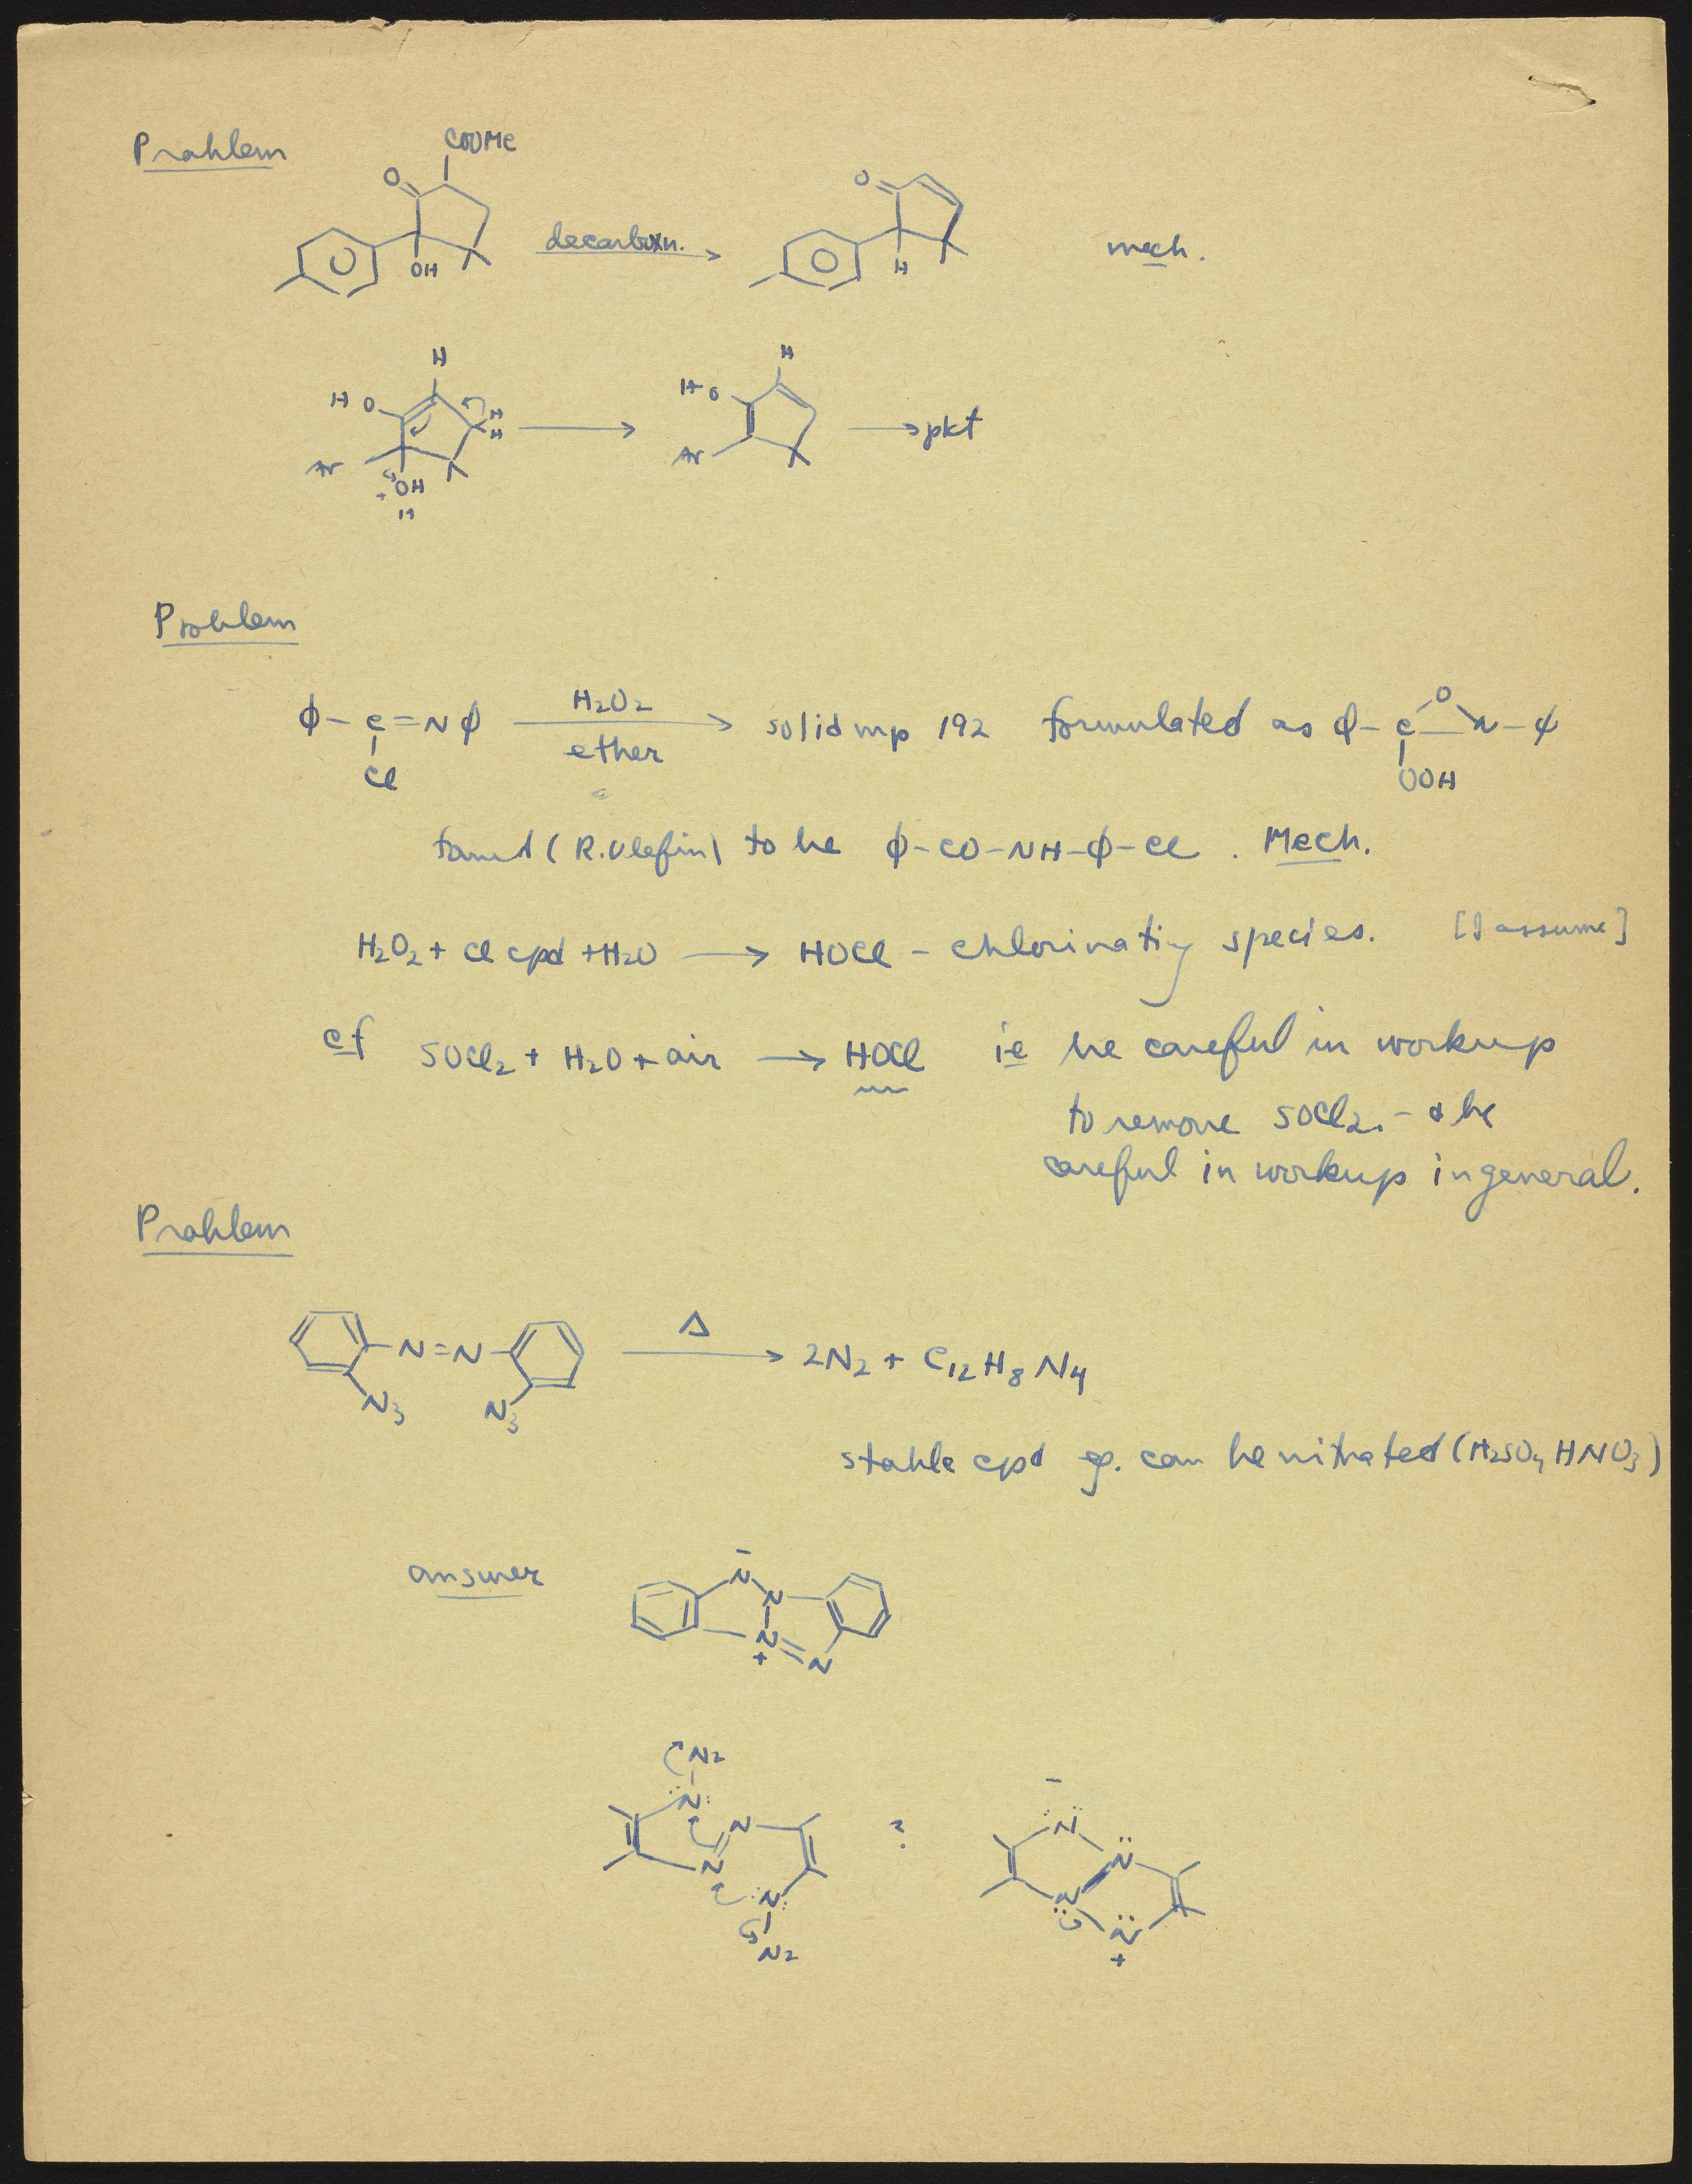 Problem
COOMe
O
OH
decarboxn.
O
H
mech.
H
H O
H
H
Ar
+ OH
H
H
H O
Ar
pkt
Problem
ϕ-C=Nϕ
Cl
H2O2
ether
solid mp 192 formulated as ϕ-C-N-ϕ
O
OOH
found (R. Olefin) to be ϕ-CO-NH-ϕ-Cl. Mech.
H2O2 + Cl cpd + H2O → HOCl - chlorinating species. [I assume]
cf SOCl2 + H2O + air → HOCl ie be careful in workup
to remove SOCl2. - & be
careful in workup in general.
Problem
N=N
N3 N3
Δ
2N2 + C12H8N4
stable cpd eg. can be nitrated (H2SO4 HNO3)
answer
-
N
N
N
+
N
N2
N
N
N
N
N2
?
-
N
N
N
N
+